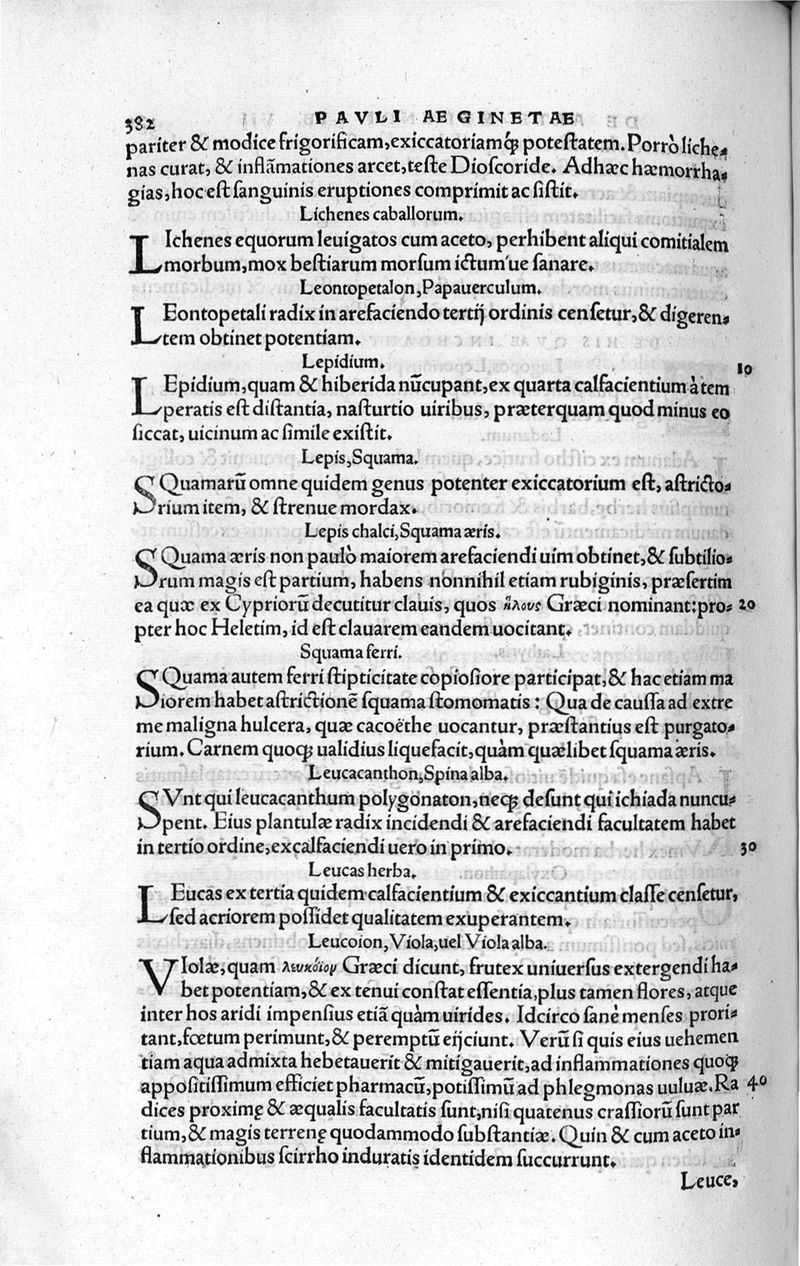 382 PAVLI AEGINETAE
pariter & modice frigorificam, exiccatoriamq́; potestatem. Porrò liche-
nas curat, & inflãmationes arcet, teste Dioscoride. Adhæc hæmorrha-
gias, hoc est sanguinis eruptiones comprimit ac sistit.
Lichenes caballorum.
LIchenes equorum leuigatos cum aceto, perhibent aliqui comitialem
morbum, mox bestiarum morsum ictum'ue sanare.
Leontopetalon, Papauerculum.
LEontopetali radix in arefaciendo tertij ordinis censetur, & digeren-
tem obtinet potentiam.
Lepidium. 10
LEpidium, quam & hiberida nũcupant, ex quarta calfacientium à tem
peratis est distantia, nasturtio uiribus, præterquam quod minus eo
siccat, uicinum ac simile existit.
Lepis, Squama.
SQuamarũ omne quidem genus potenter exiccatorium est, astricto-
rium item, & strenue mordax.
Lepis chalci, Squama æris.
SQuama æris non paulò maiorem arefaciendi uim obtinet, & subtilio-
rum magis est partium, habens nonnihil etiam rubiginis, præsertim
ea quæ ex Cypriorũ decutitur clauis, quos ἥλους Græci nominant: pro- 20
pter hoc Heletim, id est clauarem eandem uocitant.
Squama ferri.
SQuama autem ferri stipticitate copiosiore participat, & hac etiam ma
iorem habet astrictionẽ squama stomomatis: Qua de caussa ad extre
me maligna hulcera, quæ cacoëthe uocantur, præstantius est purgato-
rium. Carnem quoq; ualidius liquefacit, quàm quælibet squama æris.
Leucacanthon, Spina alba.
SVnt qui leucacanthum polygonaton, neq; desunt qui ichiada nuncu-
pent. Eius plantulæ radix incidendi & arefaciendi facultatem habet
in tertio ordine, excalfaciendi uero in primo. 30
Leucas herba.
LEucas ex tertia quidem calfacientium & exiccantium classe censetur,
sed acriorem possidet qualitatem exuperantem.
Leucoion, Viola, uel Viola alba.
VIolæ, quam λευκόϊον Græci dicunt, frutex uniuersus extergendi ha-
bet potentiam, & ex tenui constat essentia, plus tamen flores, atque
inter hos aridi impensius etiã quàm uirides. Idcirco sanè menses prori-
tant, fœtum perimunt, & peremptũ eijciunt. Verũ si quis eius uehemen
tiam aqua admixta hebetauerit & mitigauerit, ad inflammationes quoq;
appositissimum efficiet pharmacũ, potissimũ ad phlegmonas uuluæ. Ra 40
dices proximę & æqualis facultatis sunt, nisi quatenus crassiorũ sunt par
tium, & magis terrenę quodammodo substantiæ. Quin & cum aceto in-
flammationibus scirrho induratis identidem succurrunt.
Leuce,